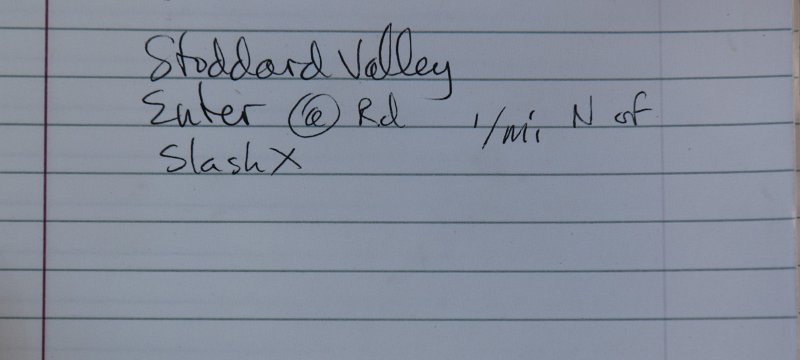 Stoddard Valley
Enter @ Rd 1/mi N of
Slash X